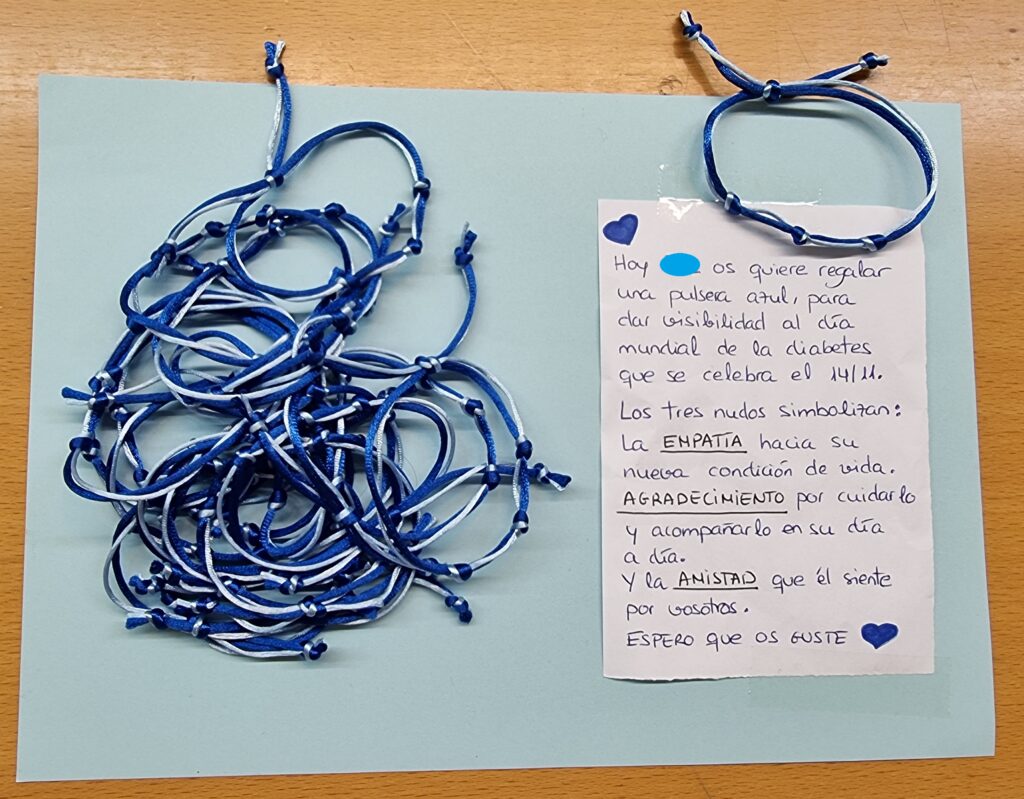 Hoy os quiere regalar
una pulsera azul, para
dar visibilidad al día
mundial de la diabetes
que se celebra el 14/11.
Los tres nudos simbolizan:
La EMPATÍA hacia su
nueva condición de vida.
AGRADECIMIENTO por cuidarlo
y acompañarlo en su día
a día.
Y la AMISTAD que él siente
por vosotros.
ESPERO que os GUSTE